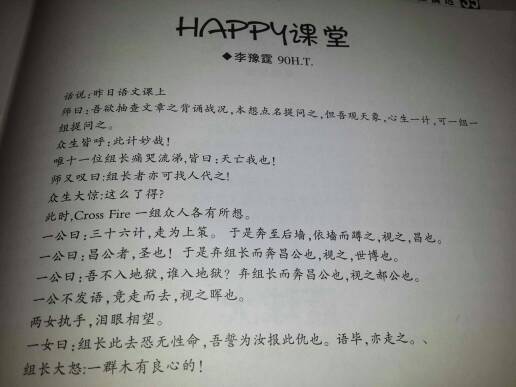 HAPPY课堂
◆李豫霆 90H.T.
话说:昨日语文课上
师曰:吾欲抽查文章之背诵战况,本想点名提问之,但吾观天象,心生一计,可一组一
组提问之。
众生皆呼:此计妙哉!
唯十一位组长痛哭流涕,皆曰:天亡我也!
师又叹曰:组长者亦可找人代之!
众生大惊:这么了得?
此时,Cross Fire 一组众人各有所想。
一公曰:三十六计,走为上策。 于是奔至后墙,依墙而蹲之,视之,昌也。
一公曰:昌公者,圣也! 于是弃组长而奔昌公也,视之,世博也。
一公曰:吾不入地狱,谁入地狱? 弃组长而奔昌公也,视之郝公也。
一公不发语,竟走而去,视之晖也。
两女执手,泪眼相望。
一女曰:组长此去恐无性命,吾誓为汝报此仇也。语毕,亦走之。、
组长大怒:一群木有良心的!